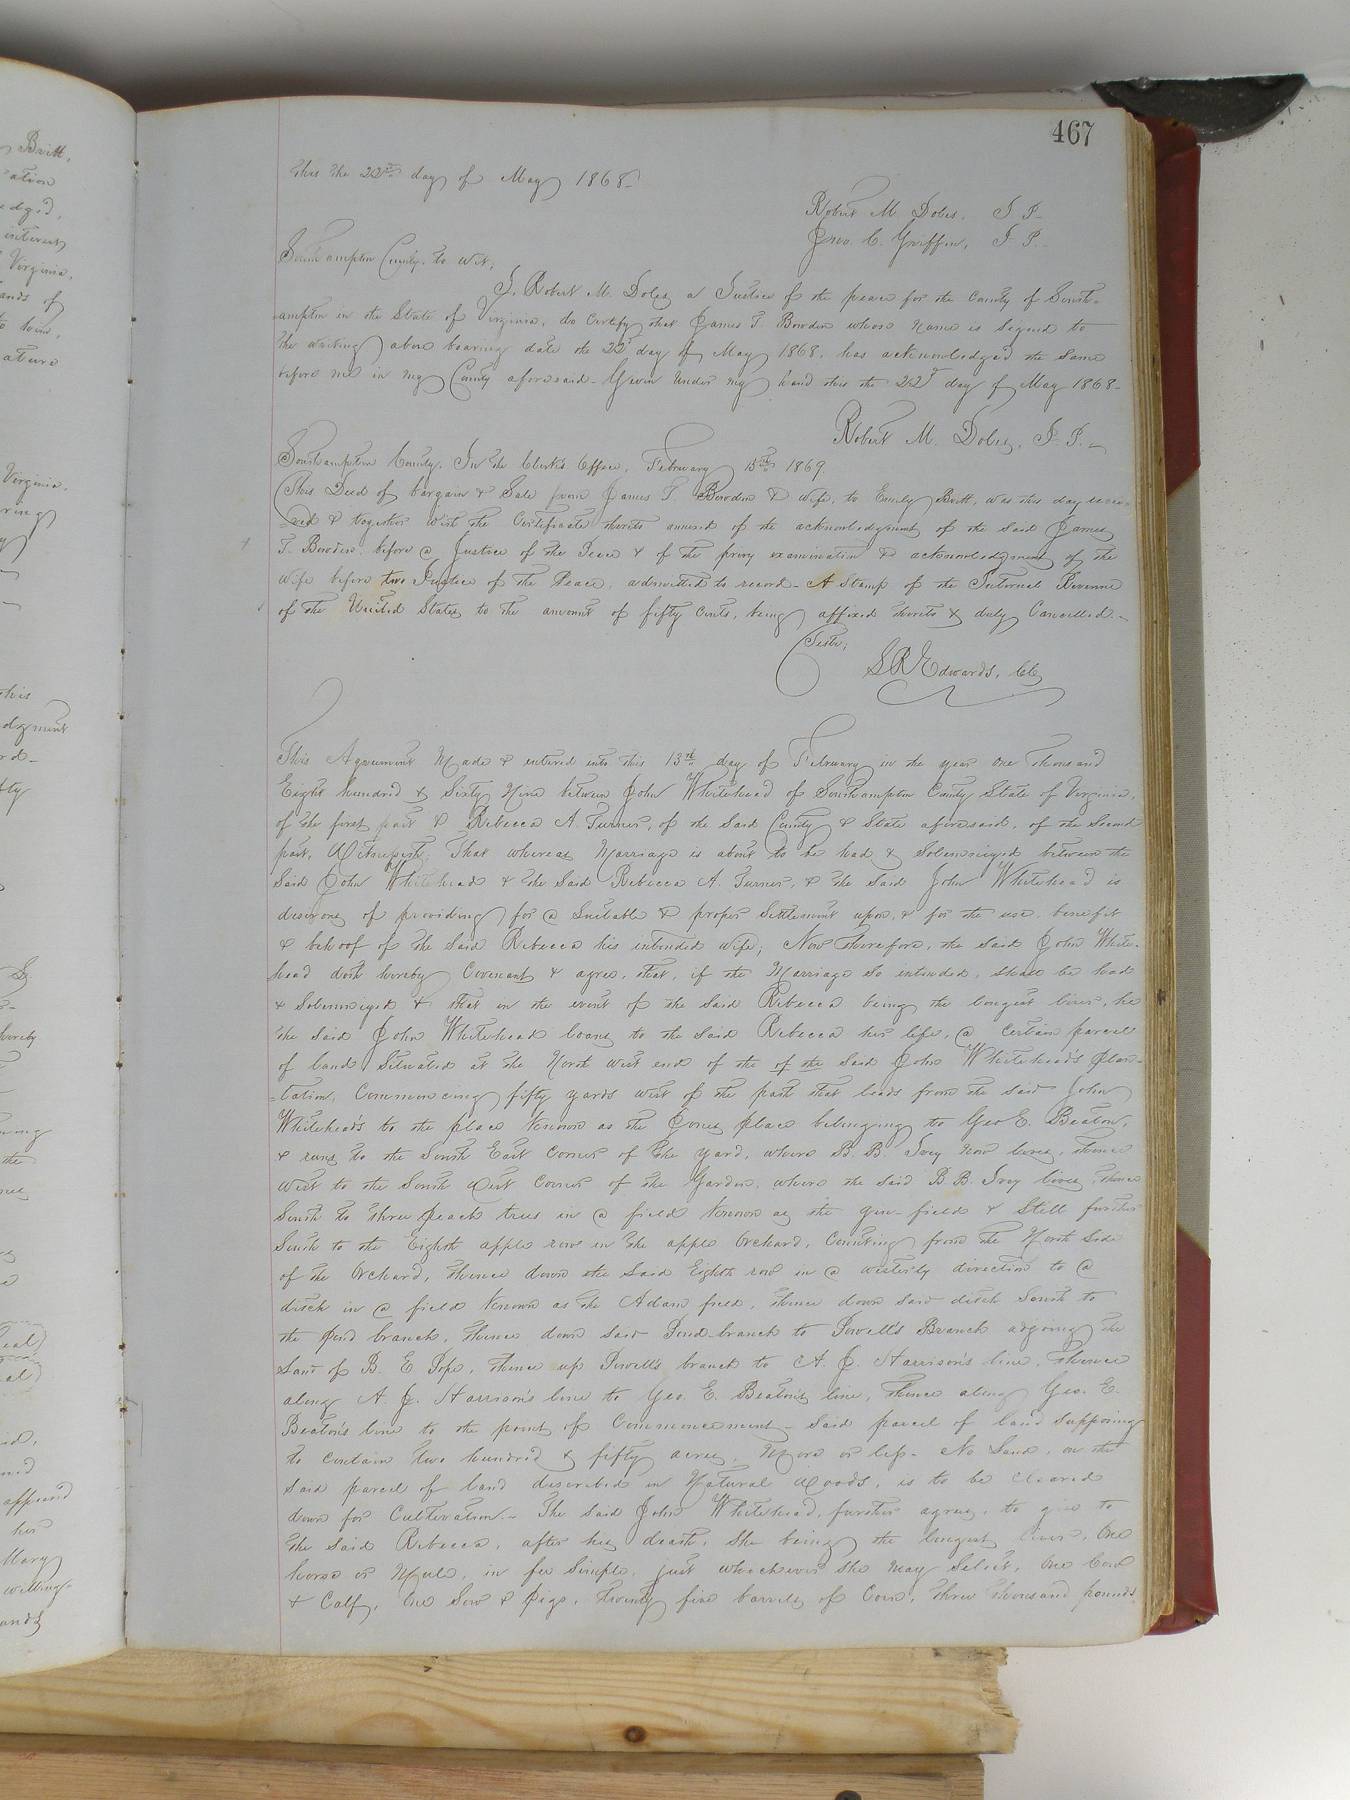 467
this the 22nd day of May 1868–
Robert M. Doles, J P–
Jno. C. Griffin, J. P.
Southampton County, to wit,
I, Robert M. Doles a Justice of the peace for the County of South-
ampton in the State of Virginia, do Certify that James T. Bowden whose name is Signed to
the writing above bearing date the 22d day of May 1868, has acknowledged the same
before me in my County aforesaid– Given under my hand this the 22d day of May 1868–
Robert M. Doles, J. P.–
Southampton County. In the Clerk's Office, February 15th 1869.
This Deed of bargain & Sale from James T. Bowden & wife, to Emily Britt, was this day recei-
-ved & together with the Certificate thereto annexed of the acknowledgment of the said James
T. Bowden before a Justice of the Peace & of the privy examination & acknowledgment of the
wife before two Justice of the Peace, admitted to record– A Stamp of the Internal Revenue
of the United States to the amount of fifty Cents, being affixed thereto & duly Cancelled.–
Teste,
S R Edwards, Clk
This Agreement Made & entered into this 13th day of February in the year one thousand
Eight hundred & Sixty Nine between John Whitehead of Southampton County State of Virginia,
of the first part & Rebecca A. Turner, of the Said County & State aforesaid, of the Second
part, Witnesseth, That whereas Marriage is about to be had & Solemnized between the
Said John Whitehead & the Said Rebecca A. Turner, & the Said John Whitehead is
desirous of providing for a Suitable & proper Settlement upon, & for the use, benefit
& behoof of the Said Rebecca his intended wife; Now Therefore, the said John White-
head doth hereby Covenant & agree, that, if the Marriage so intended, shall be had
& Solemnized & that in the event of the said Rebecca being the longest liver, he
the said John Whitehead loans to the said Rebecca her life, a Certain parcel
of land Situated at the North west end of the of the Said John Whitehead's plan-
-tation, Commencing fifty yards west of the path that leads from the said John
Whitehead's to the place Known as the Jones place belonging to Geo E. Beaton,
& runs to the South East Corner of the yard, where B. B. Ivey now lives, thence
West to the South West Corner of the Garden, where the said B. B. Ivey lives, thence
South to three peach trees in a field Known as the Gin-field & Still further
South to the Eighth apple row in the apple Orchard, Counting from the North Side
of the Orchard, thence down the Said Eighth row in a westerly direction to a
ditch in a field Known as the Adam field, thence down said ditch South to
the pond branch, thence down said Pond-branch to Powell's Branch adjoing the
Land of B. E Pope, thence up Powell's branch to A. J. Harrison's line, thence
along A. J. Harrison's line to Geo. E. Beaton's line, thence along Geo. E.
Beaton's line to the point of Commencement– Said parcel of land Supposing
to contain two hundred & fifty acres, More or less– No Land, on the
Said parcel of land described in Natural Woods, is to be Cleared
down for Cultivation.– The Said John Whitehead, further agrees, to give to
the Said Rebecca, after his death, She being the longest liver, One
horse or Mule, in fee Simple, just whichever She May Select, One Cow
& Calf, One Sow & Pigs, Twenty five barrels of Corn, three thousand pounds